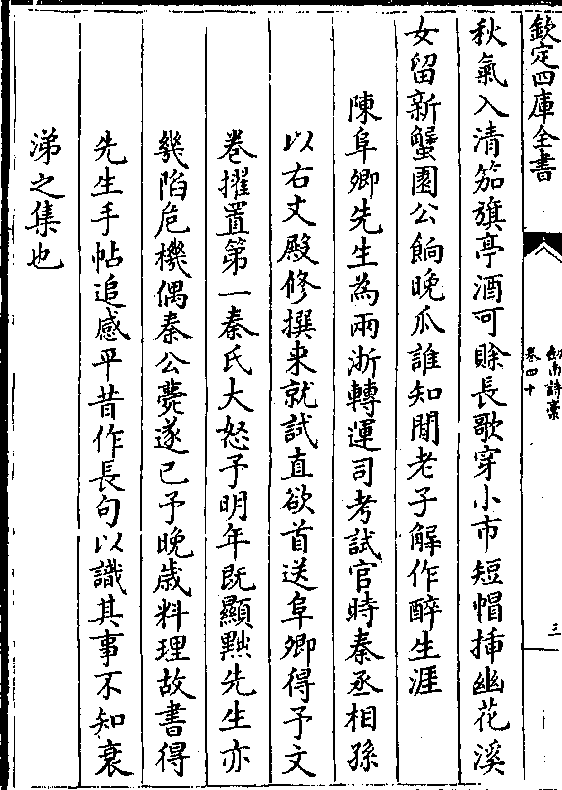 欽定四庫全書
劍南詩稾
卷四十
三
秋氣入清笳旗亭酒可賖長歌穿小市短帽揷幽花溪
女留新蟹園公餉晚瓜誰知閒老子解作醉生涯
陳阜卿先生為兩浙轉運司考試官時秦丞相孫
以右文殿修撰来就試直欲首送阜卿得予文
卷擢置第一秦氏大怒予明年既顯黜先生亦
幾陷危機偶秦公薨遂已予晚歳料理故書得
先生手帖追感平昔作長句以識其事不知衰
涕之集也